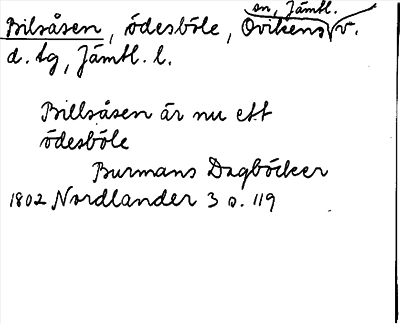 sn, Jämtl.
Bilsåsen, ödesböle, Ovikens v.
d. tg, Jämtl. l.
Billsåsen är nu ett
ödesböle
Burmans Dagböcker
1802 Nordlander 3 s. 119